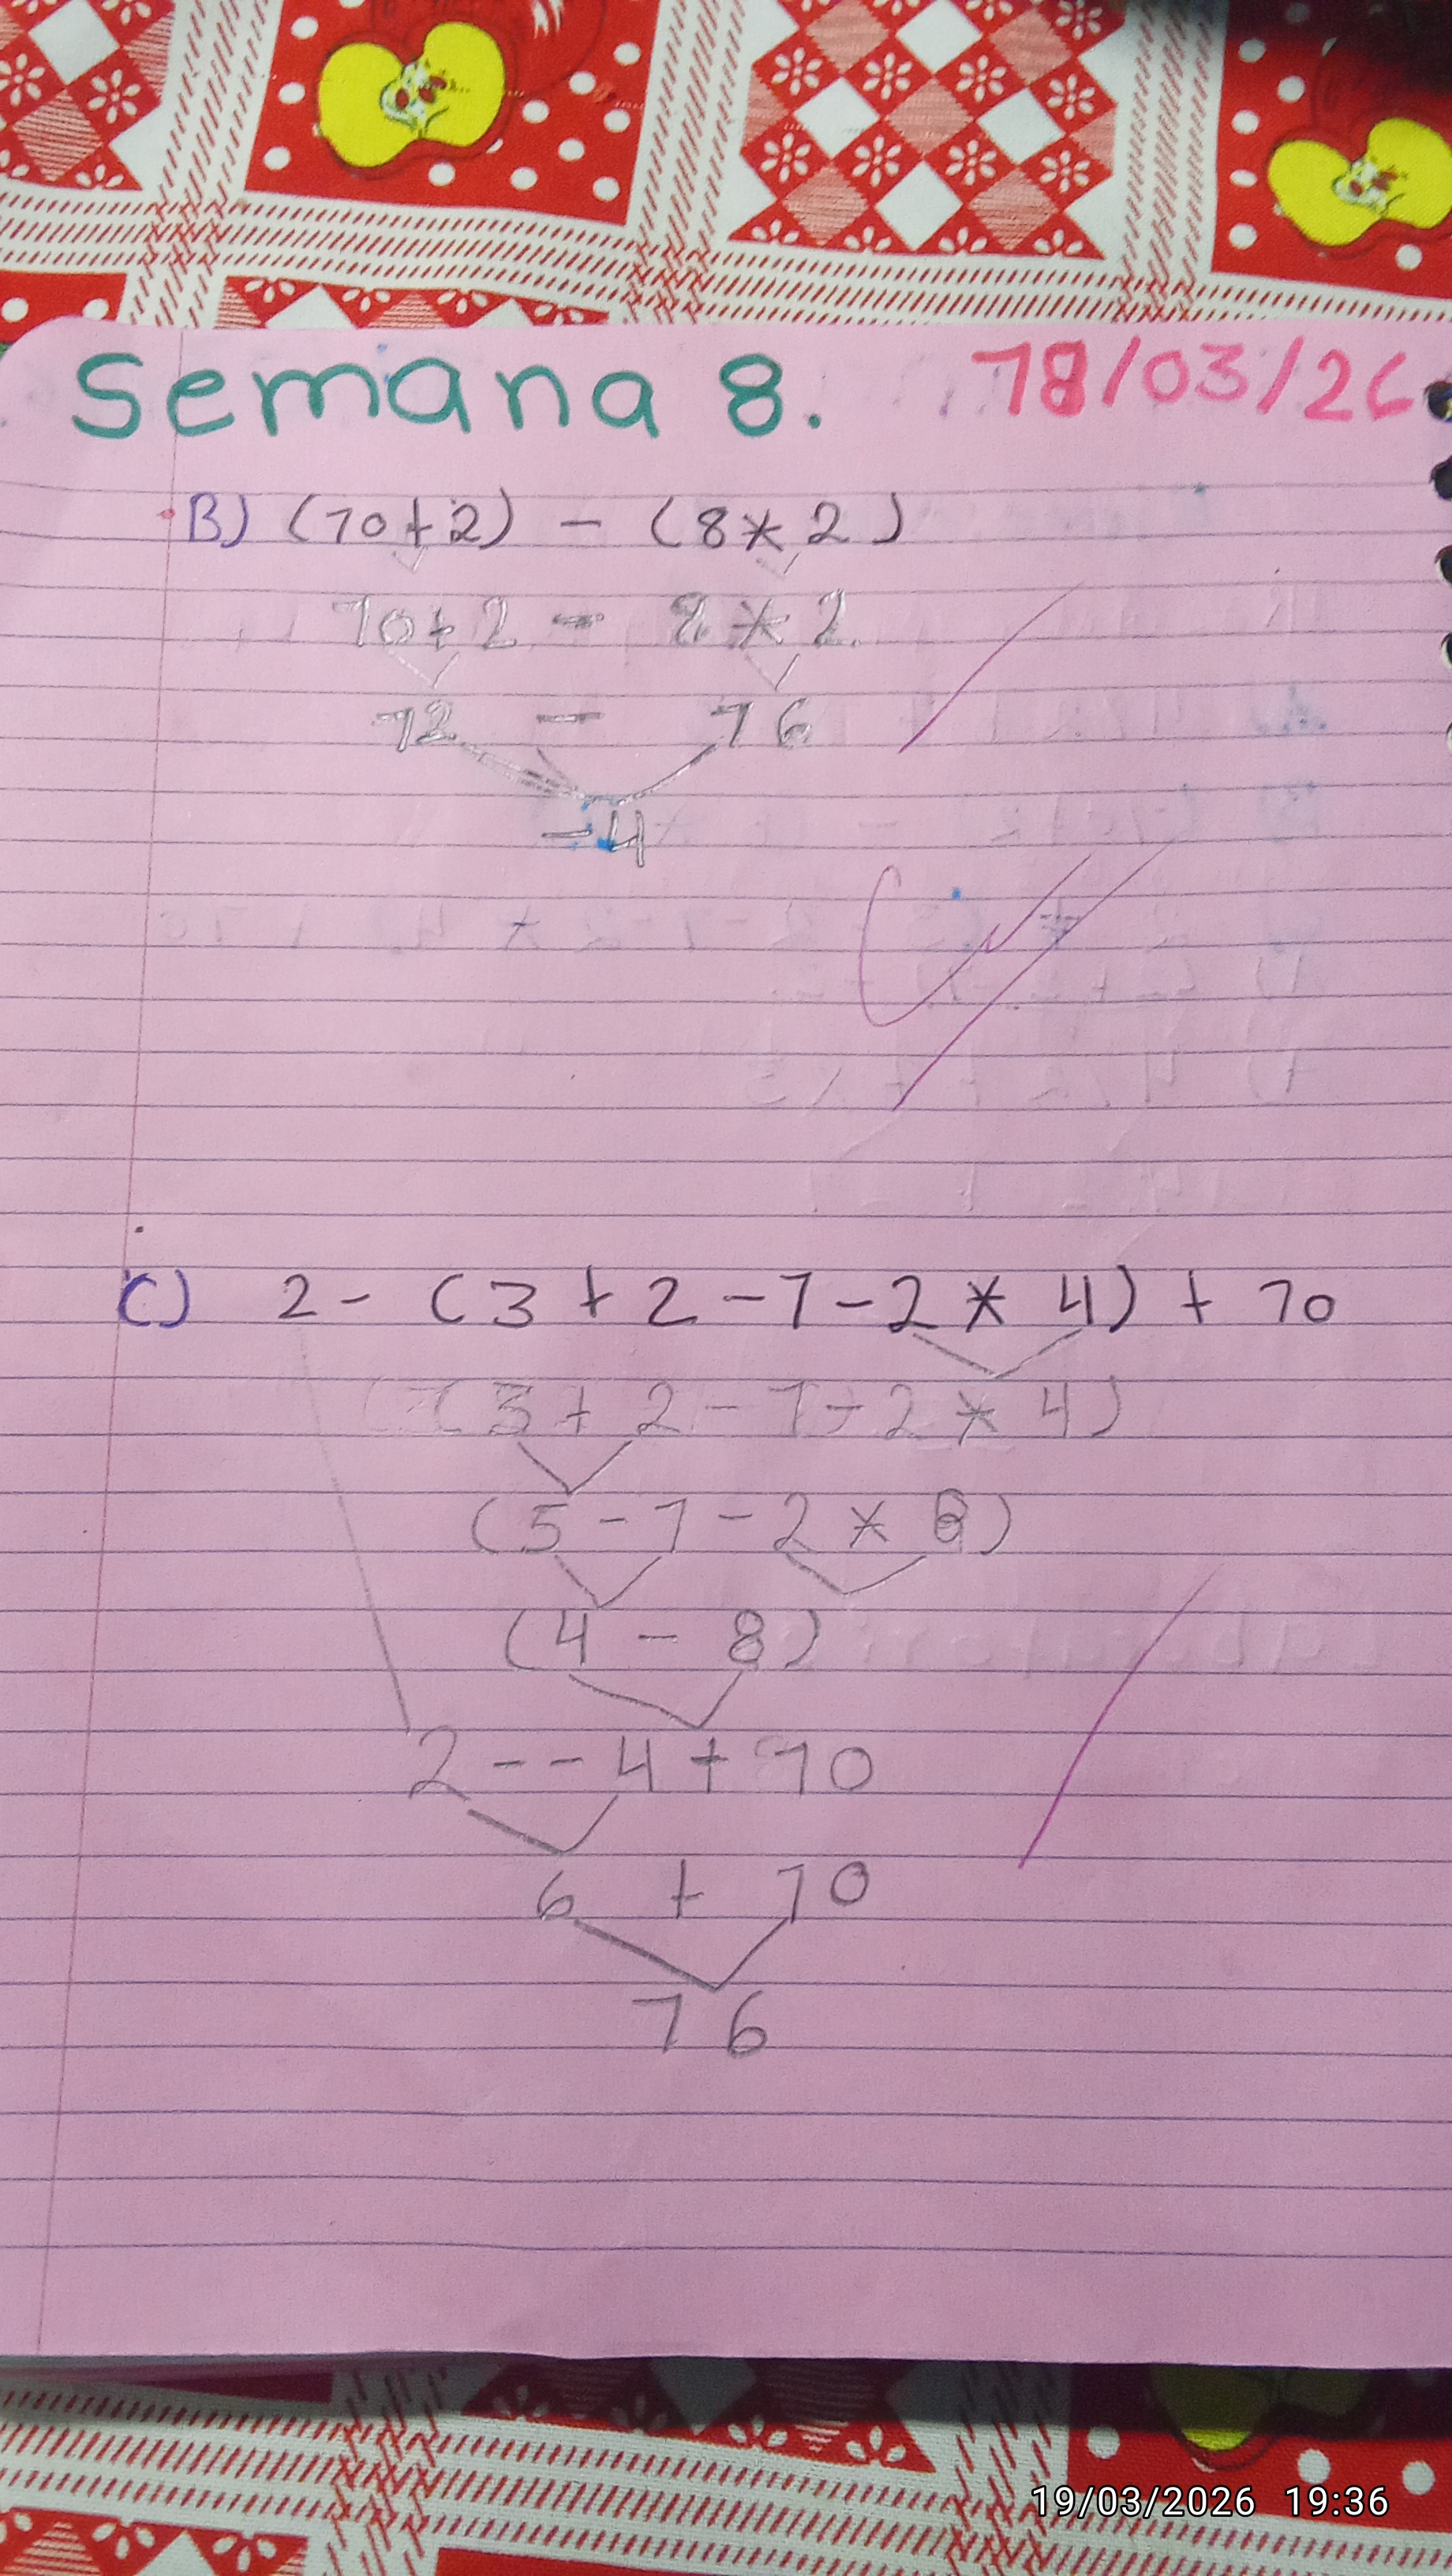 Semana 8. 18/03/26
B) (10+2) - (8*2)
10+2 - 8*2
12 - 16
-4
C) 2 - (3 + 2 - 1 - 2 * 4) + 10
(3 + 2 - 1 - 2 * 4)
(5 - 1 - 2 * 8)
(4 - 8)
2 - - 4 + 10
6 + 10
16
19/03/2026 19:36